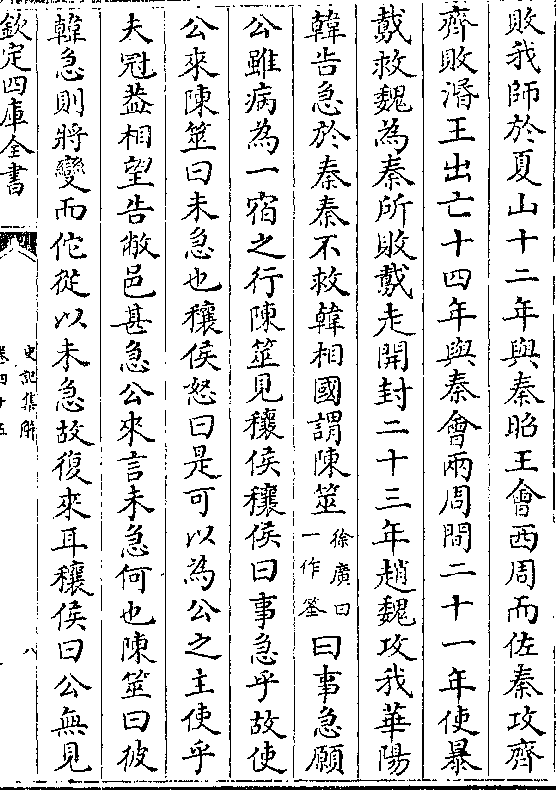 敗我師於夏山十二年與秦昭王會西周而佐秦攻齊
齊敗湣王出亡十四年與秦會兩周間二十一年使暴
䳒救魏為秦所敗䳒走開封二十三年趙魏攻我華陽
韓告急於秦秦不救韓相國謂陳筮徐廣曰一作筌曰事急願
公雖病為一宿之行陳筮見穰侯穰侯曰事急乎故使
公來陳筮曰未急也穰侯怒曰是可以為公之主使乎
夫冠葢相望告敝邑甚急公來言未急何也陳筮曰彼
韓急則將變而佗從以未急故復來耳穰侯曰公無見
欽定四庫全書
史記集解
卷四十五
八